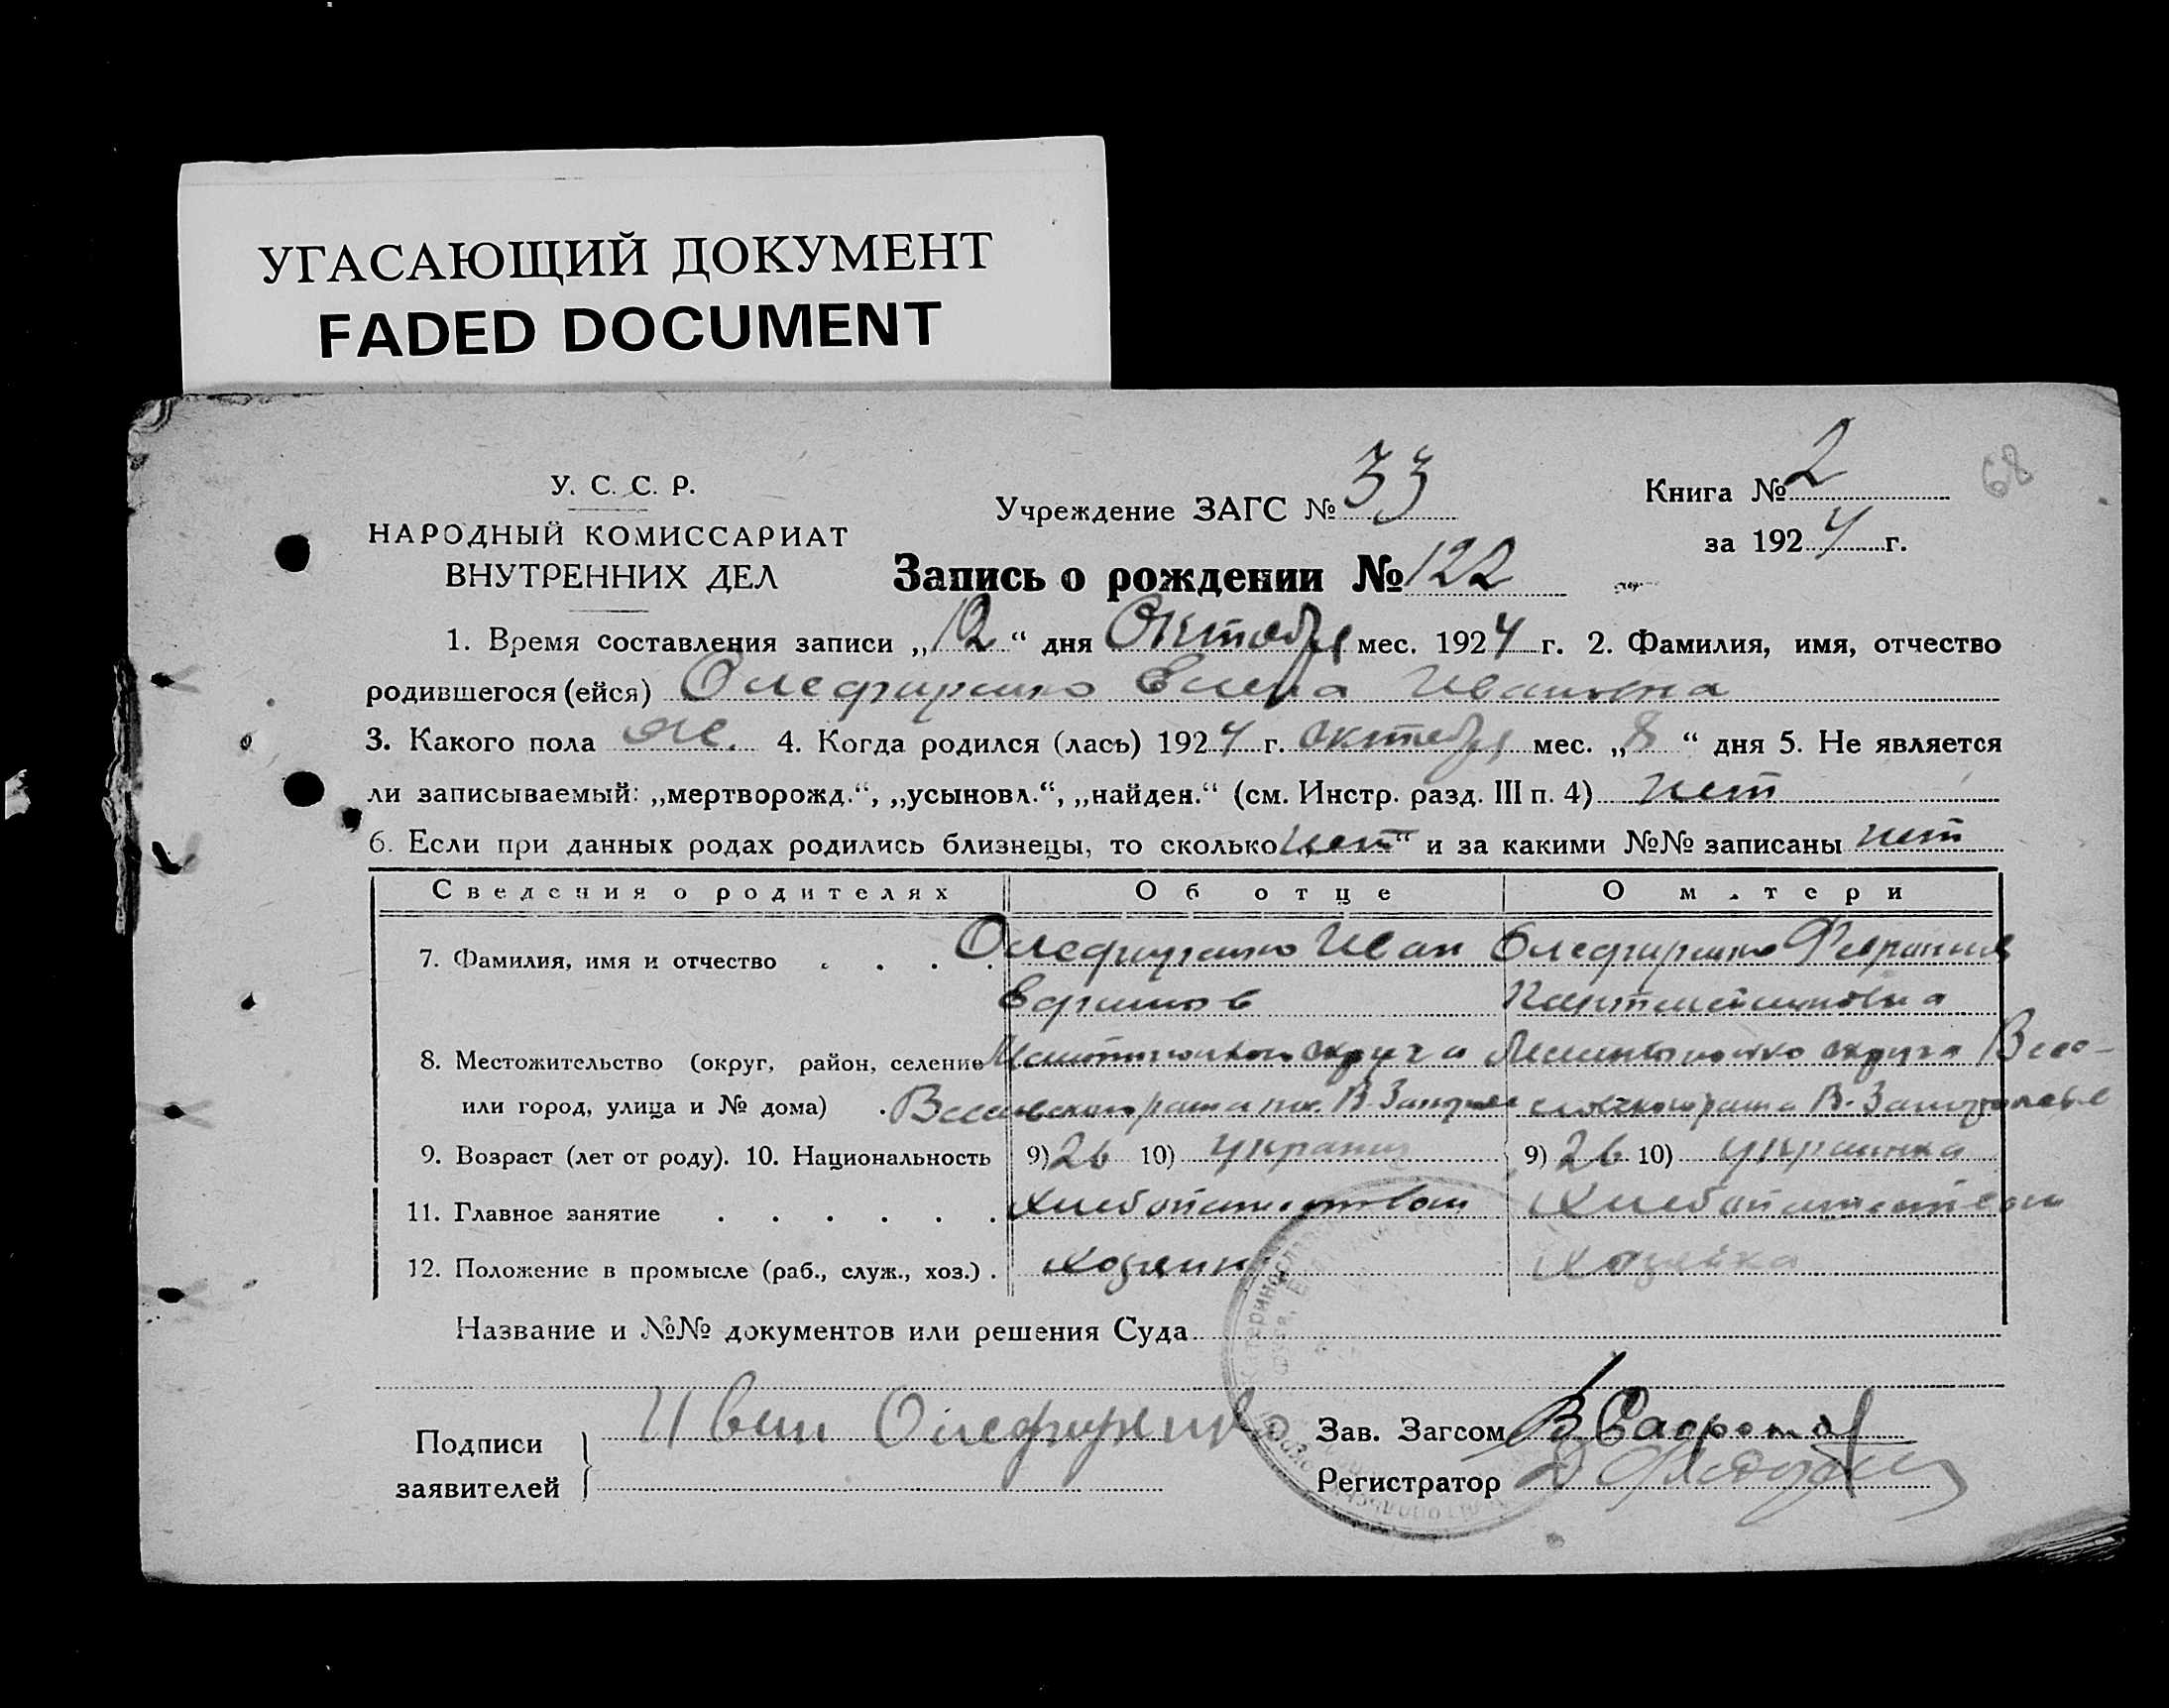 УГАСАЮЩИЙ ДОКУМЕНТ
FADED DOCUMENT
68
У. С. С. Р.
НАРОДНЫЙ КОМИССАРИАТ
ВНУТРЕННИХ ДЕЛ
Учреждение ЗАГС № 33
Книга № 2
за 1924 г.
Запись о рождении № 122
1. Время составления записи „12“ дня Октября мес. 1924 г. 2. Фамилия, имя, отчество
родившегося (ейся) Олефиренко Елена Ивановна
3. Какого пола ж. 4. Когда родился (лась) 1924 г. октября мес. „8“ дня 5. Не является
ли записываемый: „мертворожд.“, „усыновл.“, „найден.“ (см. Инстр. разд. III п. 4) нет
6. Если при данных родах родились близнецы, то сколько „нет“ и за какими №№ записаны нет
Сведения о родителях Об отце О матери
7. Фамилия, имя и отчество . . . . Олефиренко Иван Олефиренко
8. Местожительство (округ, район, селение округа округа
или город, улица и № дома) . района В. района В.
9. Возраст (лет от роду). 10. Национальность 9) 26 10) украин 9) 26 10) украинка
11. Главное занятие . . . . . . Хлебопашеством Хлебопашеством
12. Положение в промысле (раб., служ., хоз.) . хозяин хозяйка
Название и №№ документов или решения Суда
Подписи
заявителей
Иван Олефиренко
Зав. Загсом
Регистратор